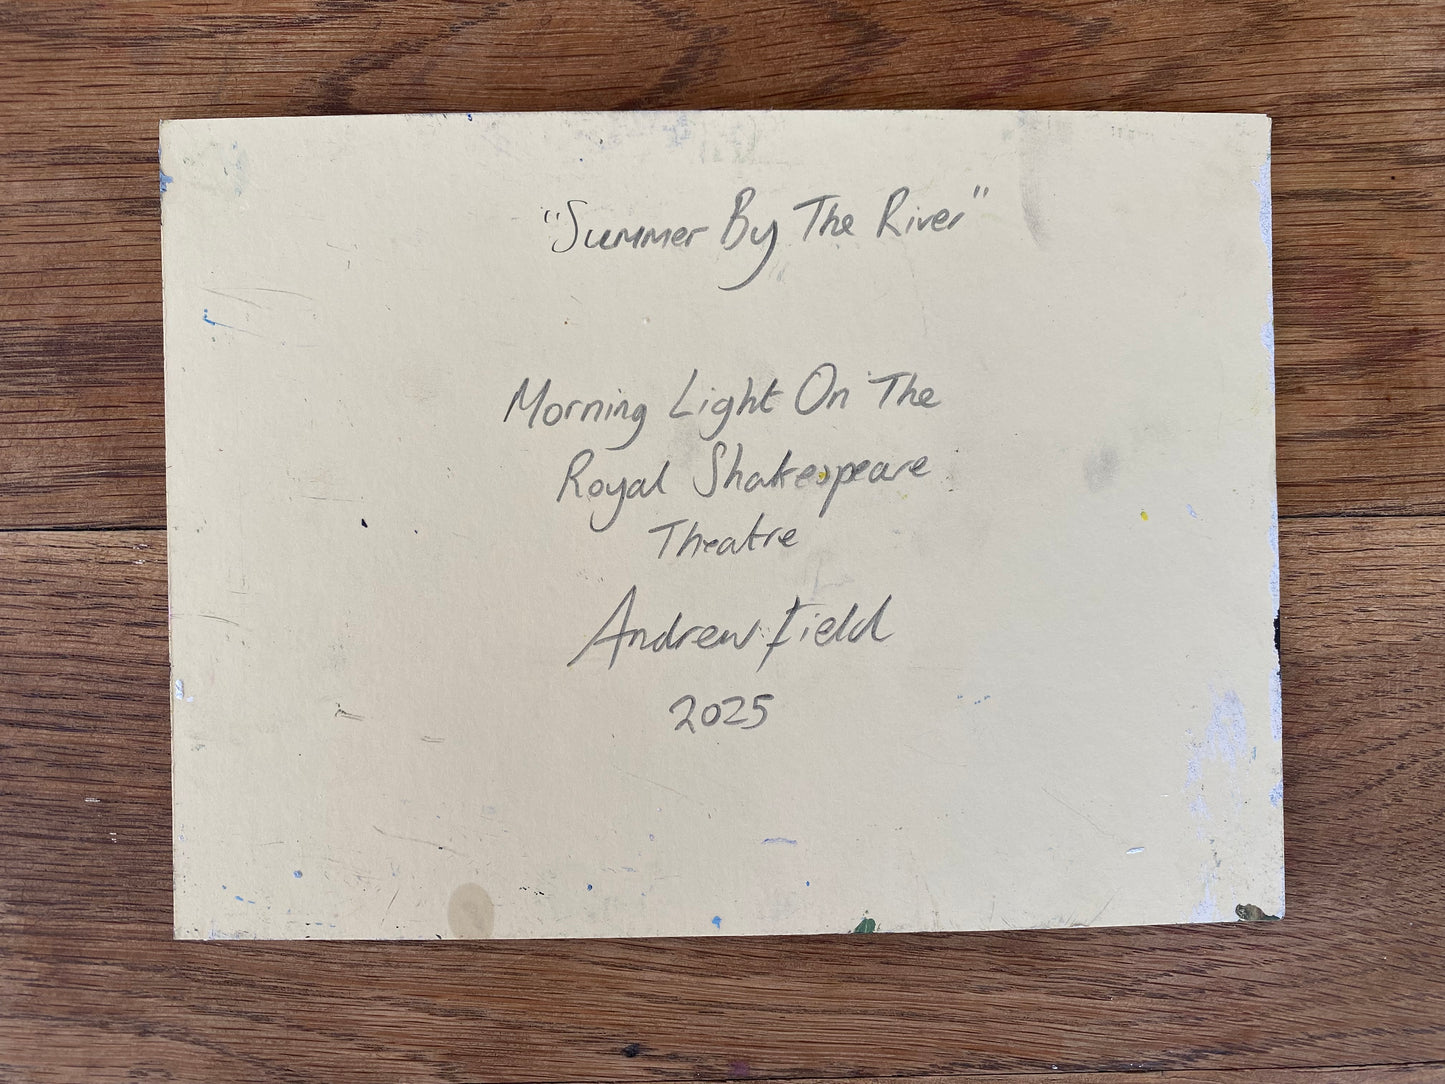 "Summer By The River"
Morning Light On The
Royal Shakespeare
Theatre
Andrew Field
2025